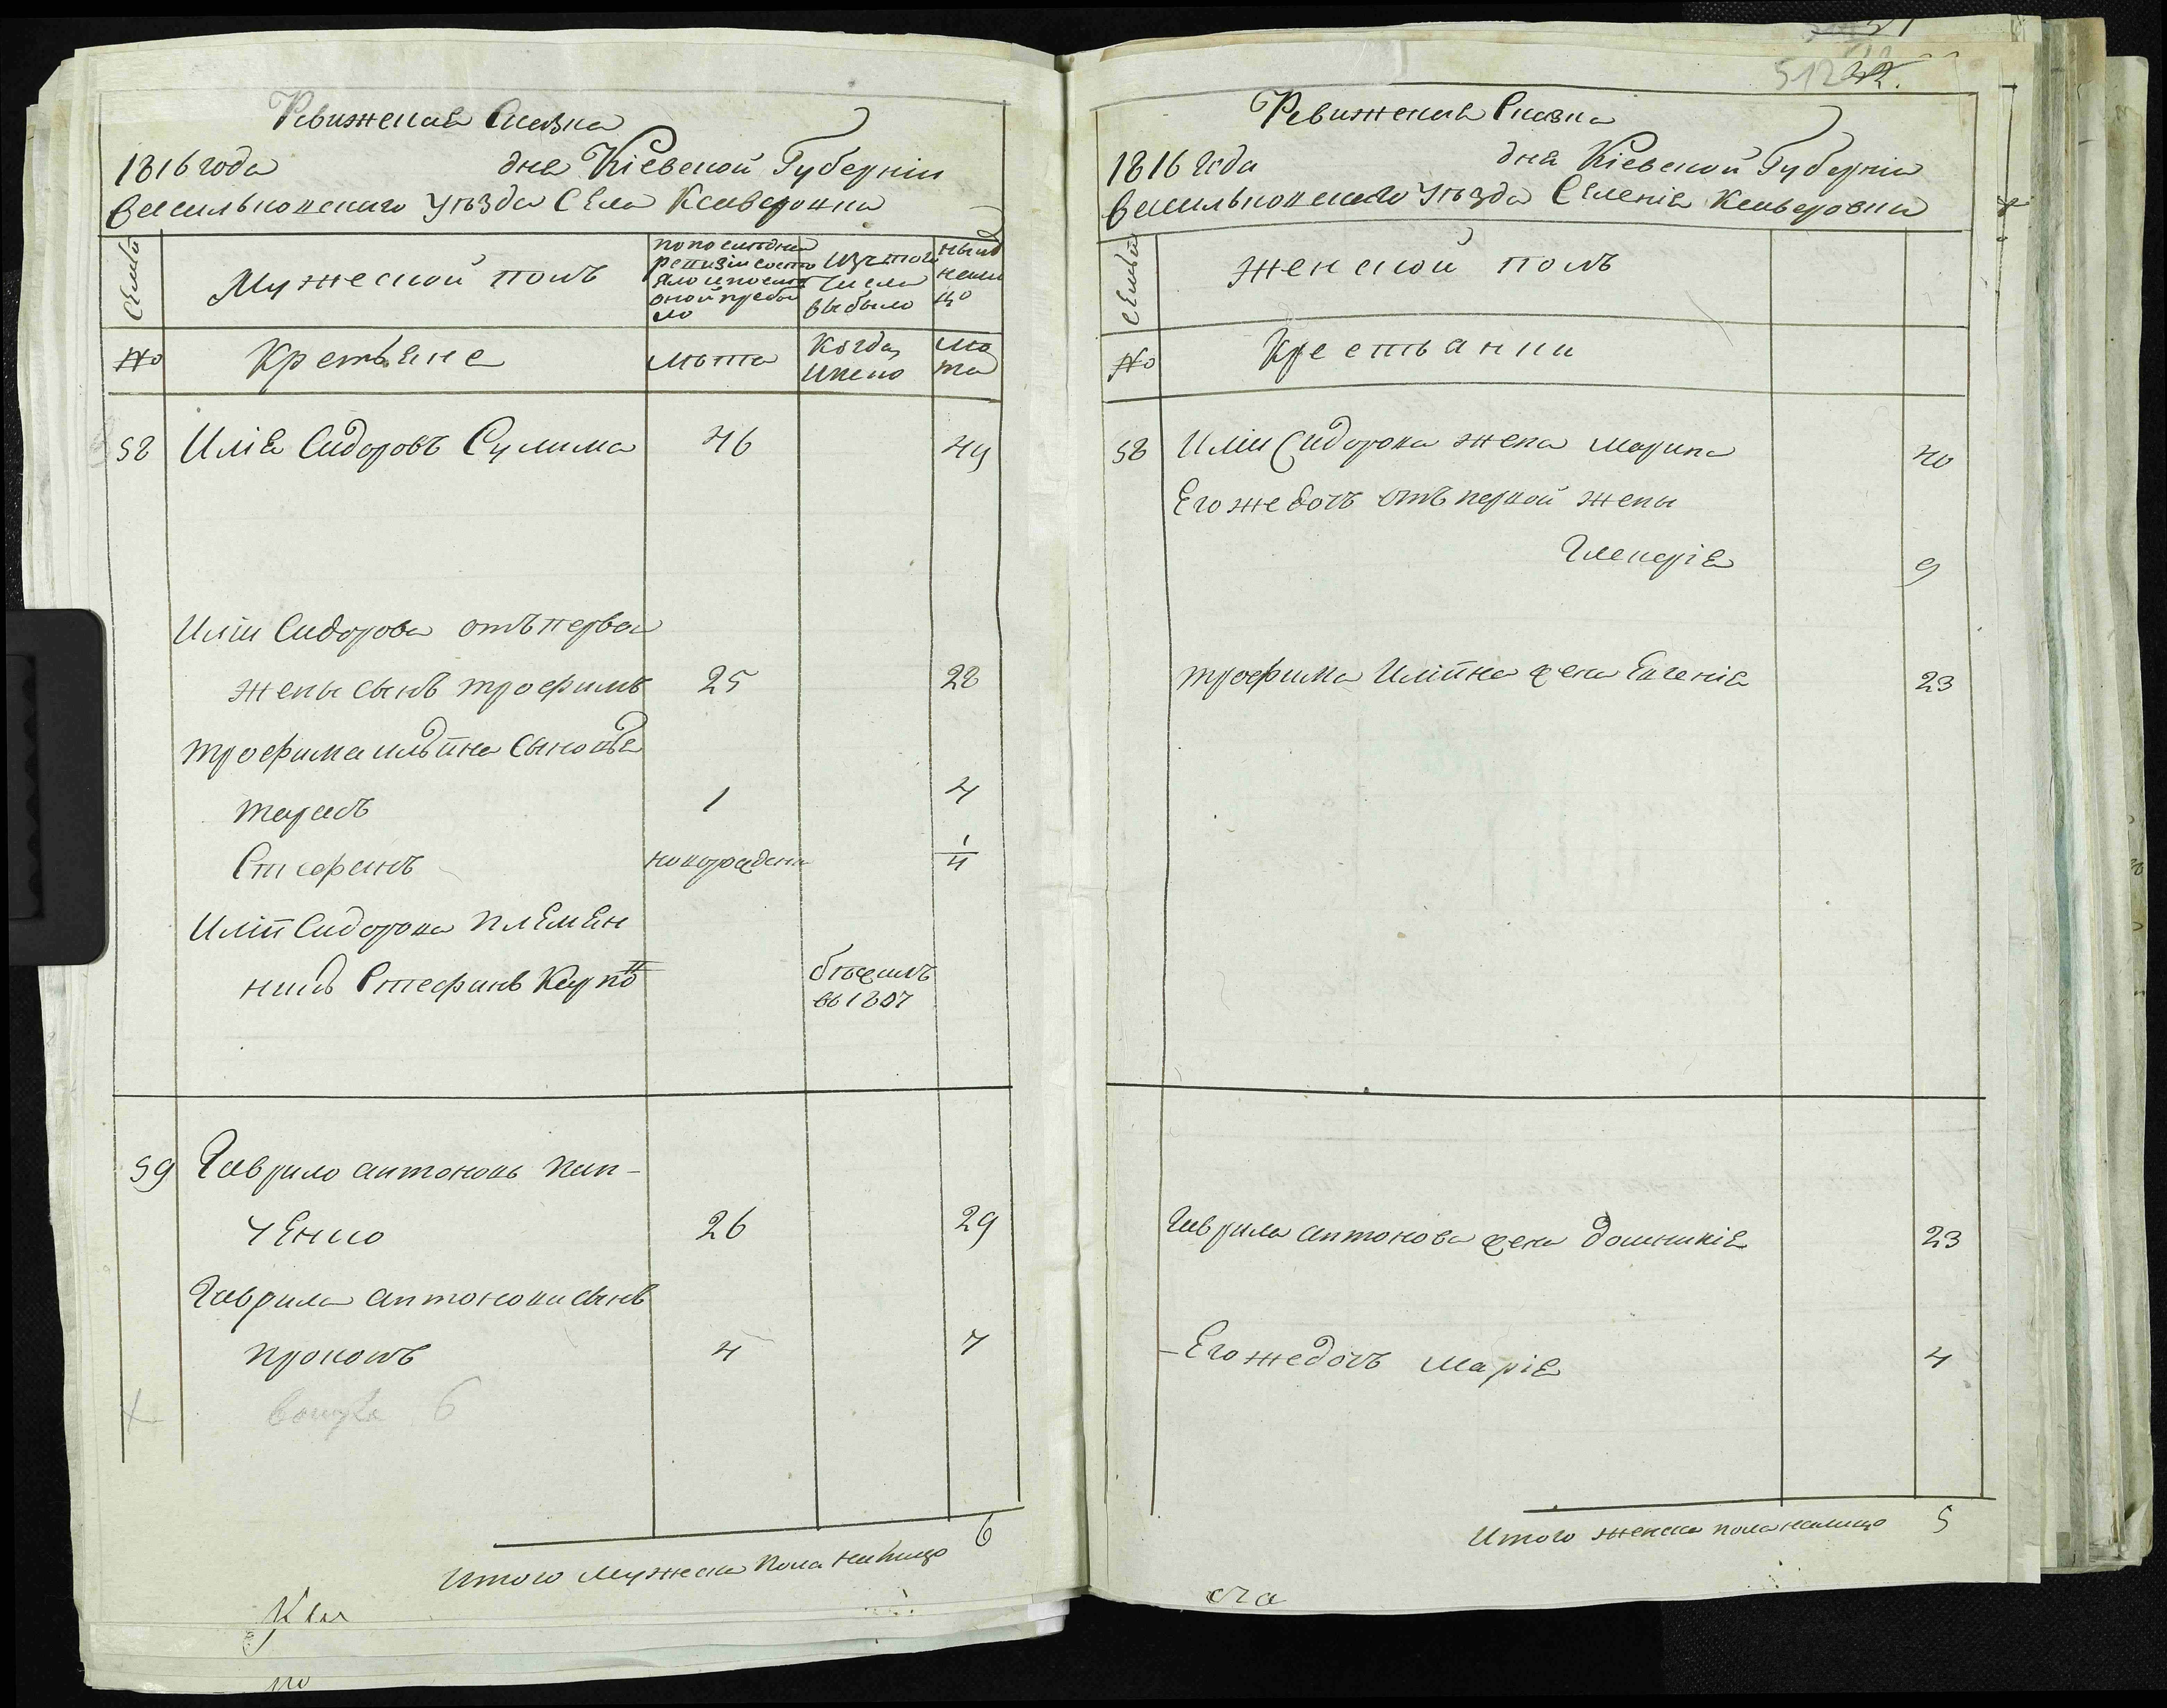 Ревижская Сказка
1816 года дня Кіевской Губерніи
Васильковского уѣзда Села Ксаверовки
Семьи
Мужеской полъ
по последней ревизіи состояло и после оной прибыло
Изъ того числа выбыло
Ныне на лицо
№
Крестьяне
лѣта
Когда имено
лѣта
58 Илія Сидоровъ Сулима 46 49
Иліи Сидорова отъ первой
жены сынъ трофимъ 25 28
трофима ильина сыновья
тарасъ 1 4
Стефанъ новорожденъ 1/4
Иліи Сидорова племен
никъ Стефанъ Карповъ бѣжалъ
въ 1807
59 Гаврило антоновъ пан-
ченко 26 29
Гаврила антонова сынъ
прокопъ 4 7
6
Итого мужеска пола налицо 6
Ревижская Сказка
1816 года дня Кіевской Губерніи
Васильковского уѣзда Селенія Ксаверовки
Семьи
женской полъ
№
Крестьянки
58 Иліи Сидорова жена марина 40
Его же дочь отъ первой жены
Гликерія 9
трофима Иліина жена Евгенія 23
Гаврила антонова жена домникія 23
-Его же дочь марія 4
Итого женска пола налицо 5